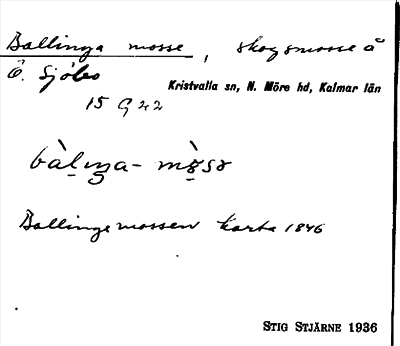 Ballinga mosse, skogsmosse å
Ö. Sjöbo
Kristvalla sn, N. Möre hd, Kalmar län
15 G 22
Ballingemossen karta 1846
STIG STJÄRNE 1936